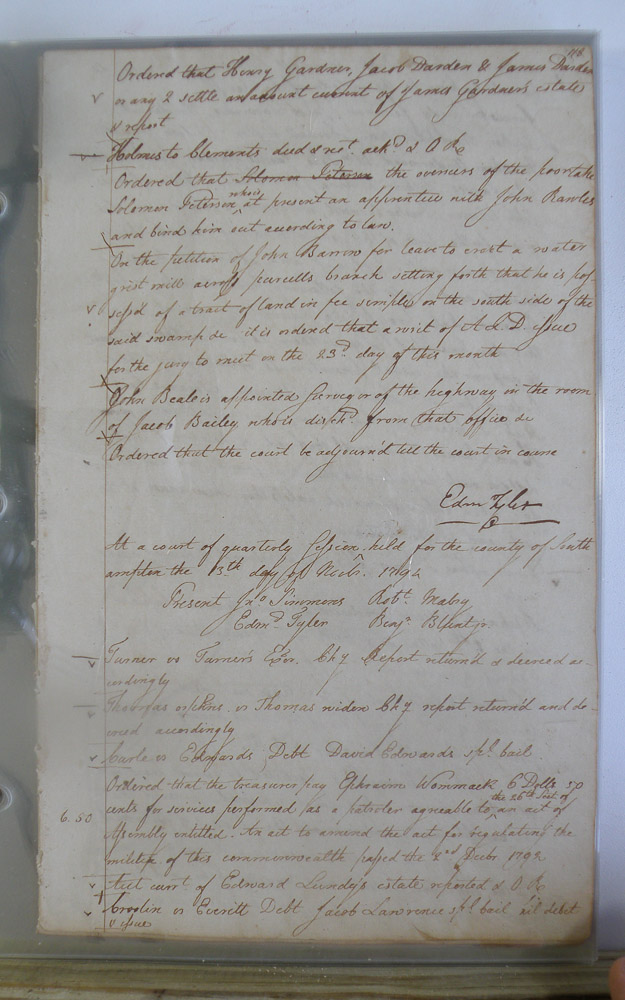 118.
Ordered that Henry Gardner, Jacob Darden & James Darden
or any 2 settle an account current of James Gardner's estate
& report
Holmes to Clements deed & rect. ackd. & O R
Ordered that Solomon Peterson the overseers of the poor take
Solomon Peterson who is at present an apprentice with John Rawles
and bind him out according to law.
On the petition of John Barrow for leave to erect a water
grist mill across parcells branch setting forth that he is pos-
sessd of a tract of land in fee simple on the south side of the
said swamp &c it is ordered that a writ of A Q D issue
for the jury to meet on the 23d. day of this month
John Beale is appointed Surveyor of the highway in the room
of Jacob Bailey who is disch. from that office &c
Ordered that the court be adjourn'd till the court in course
Edm Tyler
At a court of quarterly Session held for the county of South
ampton the 13th day of Novbr. 1794
Present Jno Simmons Robt. Mabry
Edmd. Tyler Benja. Blunt jr.
Turner vs Turner's Exr. Chy Report return'd & decreed ac-
cordingly
Thomas orphans vs Thomas widow Chy report return'd and de-
creed accordingly
vs Edwards Debt David Edwards spl. bail
Ordered that the treasurer pay Ephraim Wommack 6 Dolls 50
6.50 cents for services performed as a patroler agreeable to the 26th Sect of an act of
Assembly entitled An act to amend the act for regulating the
militia of this commonwealth passed the 2nd Decbr 1792
Acct currt. of Edward Lundy's estate reported & O R
vs Everitt Debt Jacob Lawrence spl bail nil debet
& issue